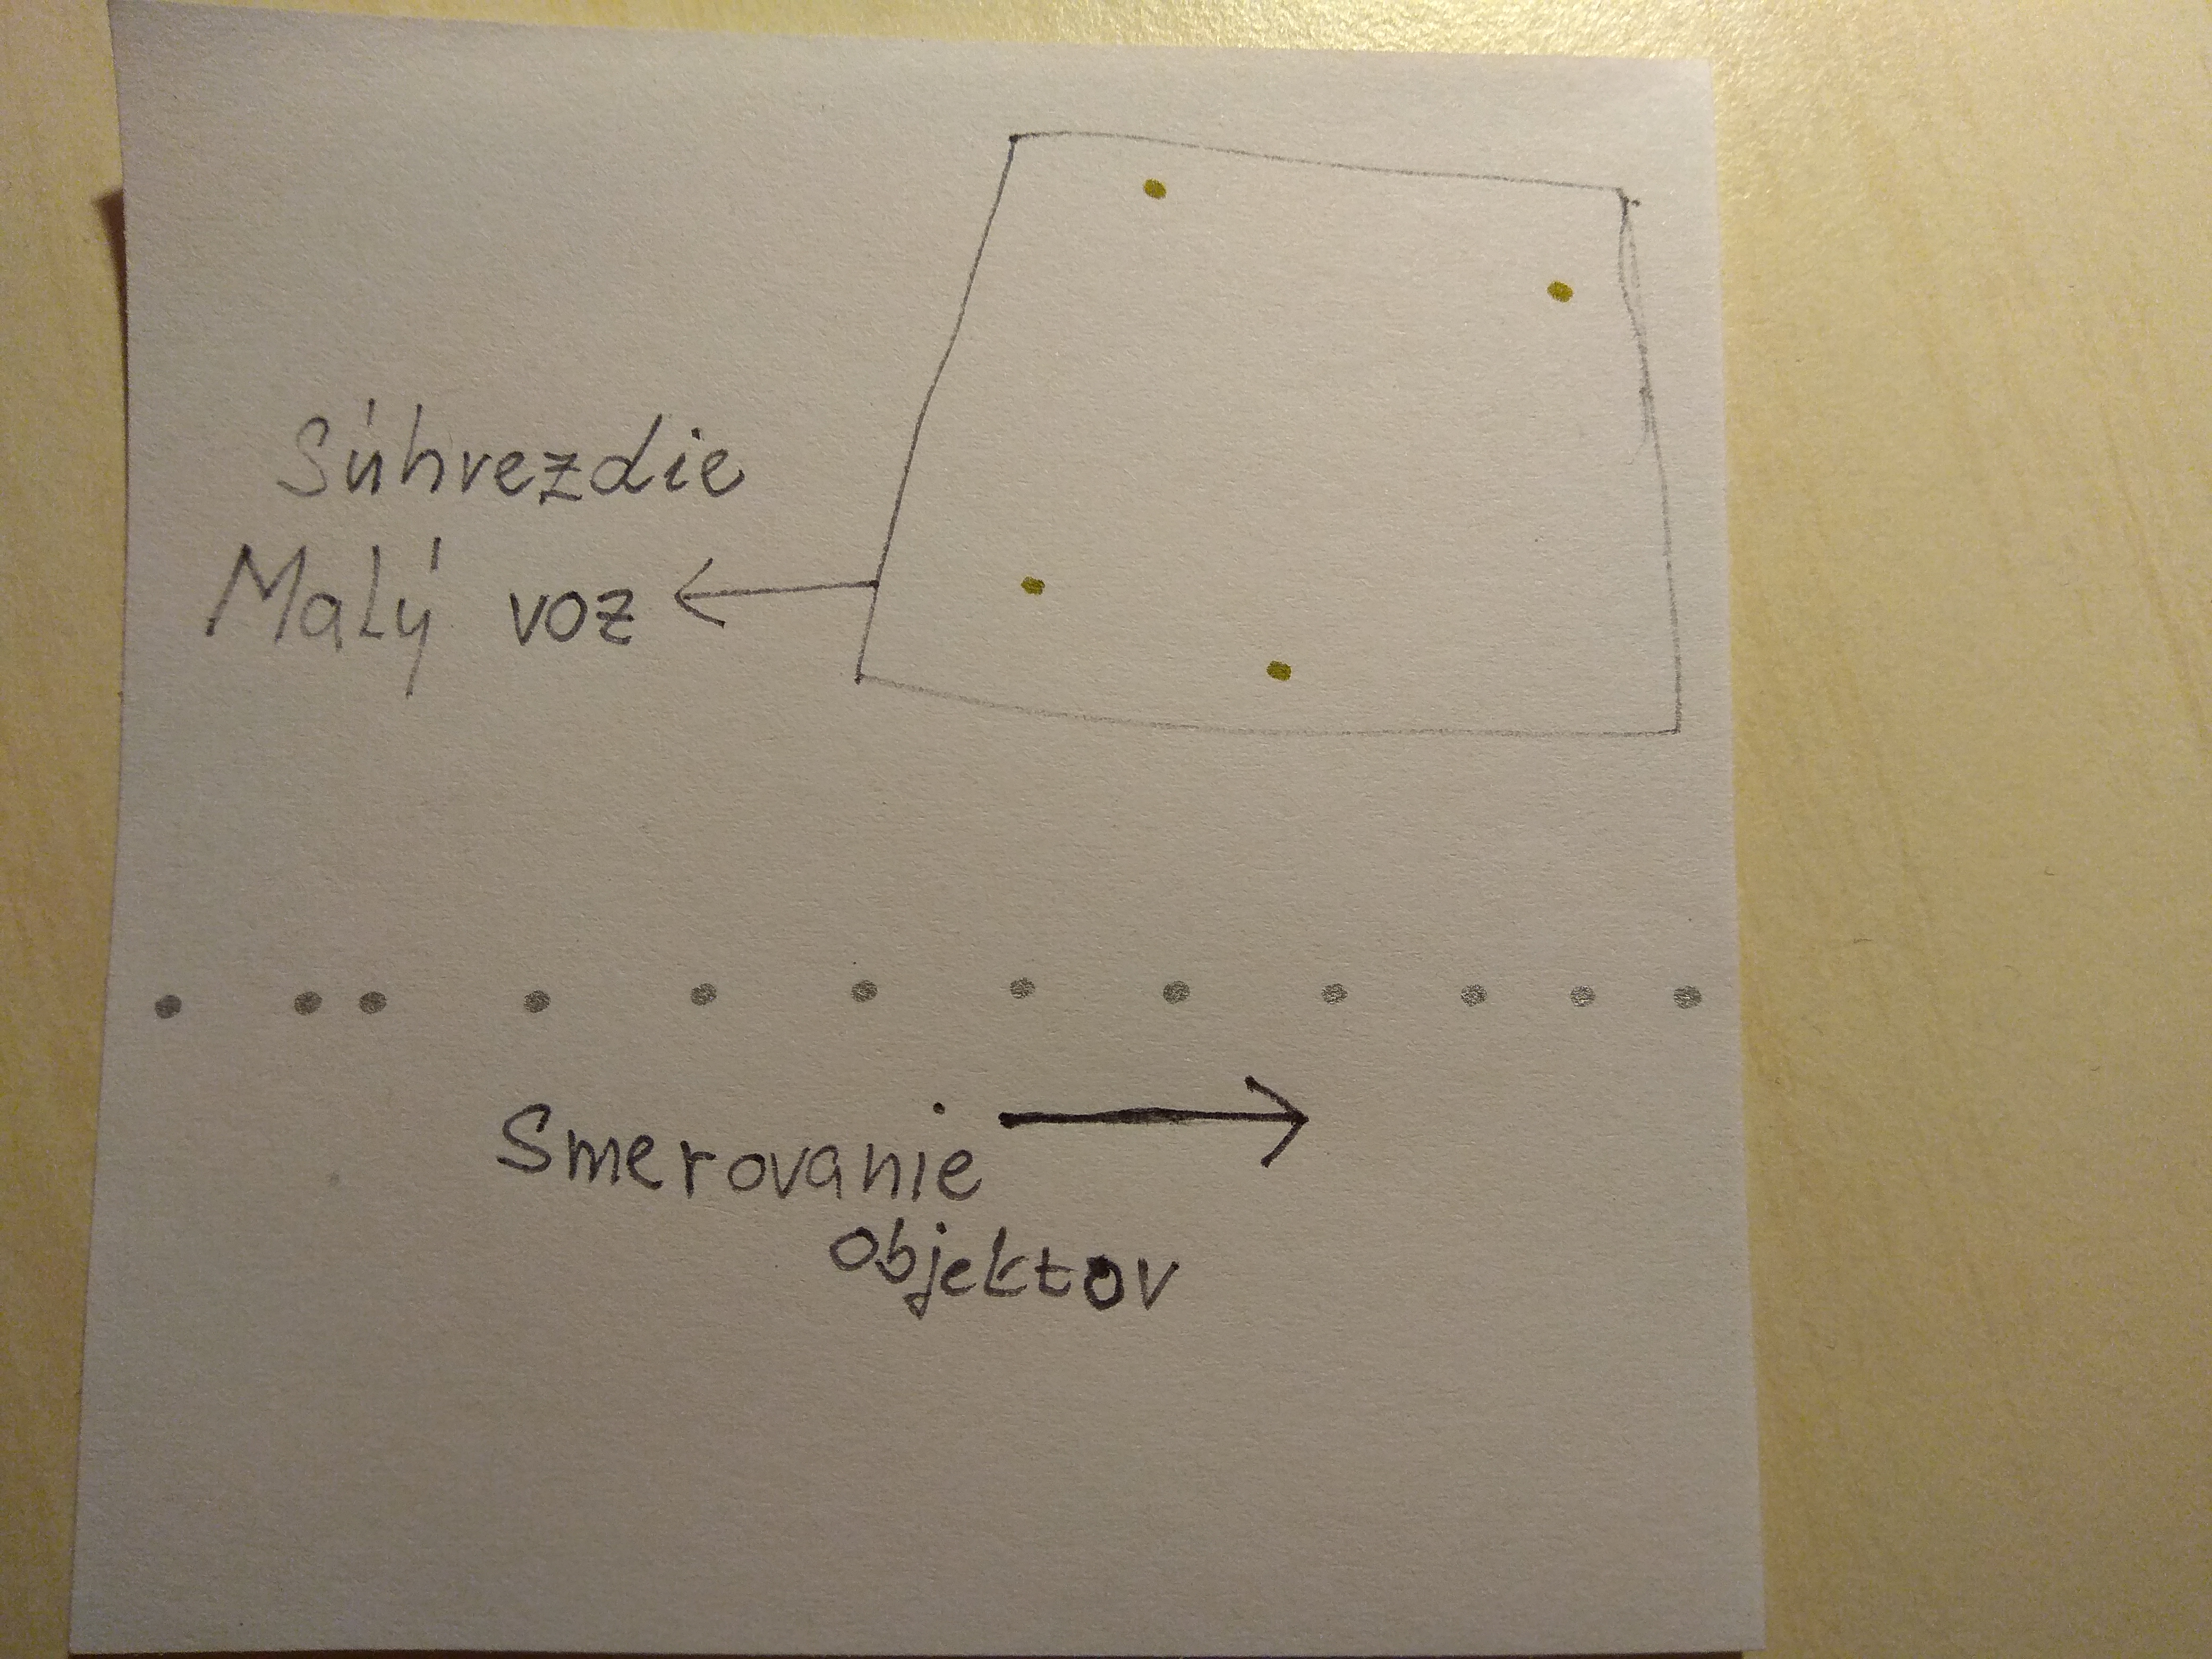 Súhvezdie
Malý voz
Smerovanie
objektov